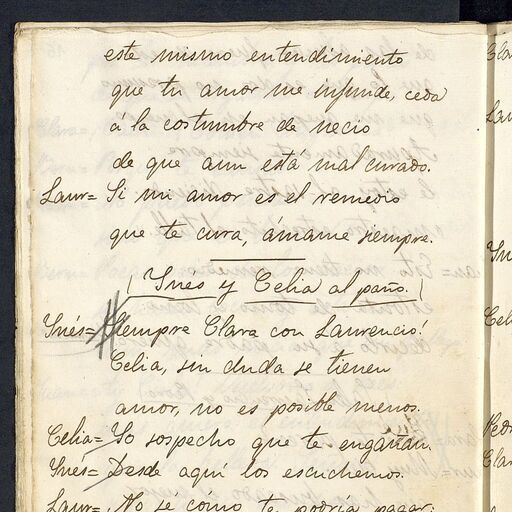 este mismo entendimiento
que tu amor me infunde, ceda
á la costumbre de necio
de que aun está mal curado.
Laur= Si mi amor es el remedio
que te cura, ámame siempre.
( Ynes y Celia al paño. )
Ynés= Siempre Clara con Laurencio!
Celia, sin duda se tienen
amor, no es posible menos.
Celia= Yo sospecho que te engañan.
Ynés= Desde aquí los escuchemos.
Laur= No sé como te podria pagar: